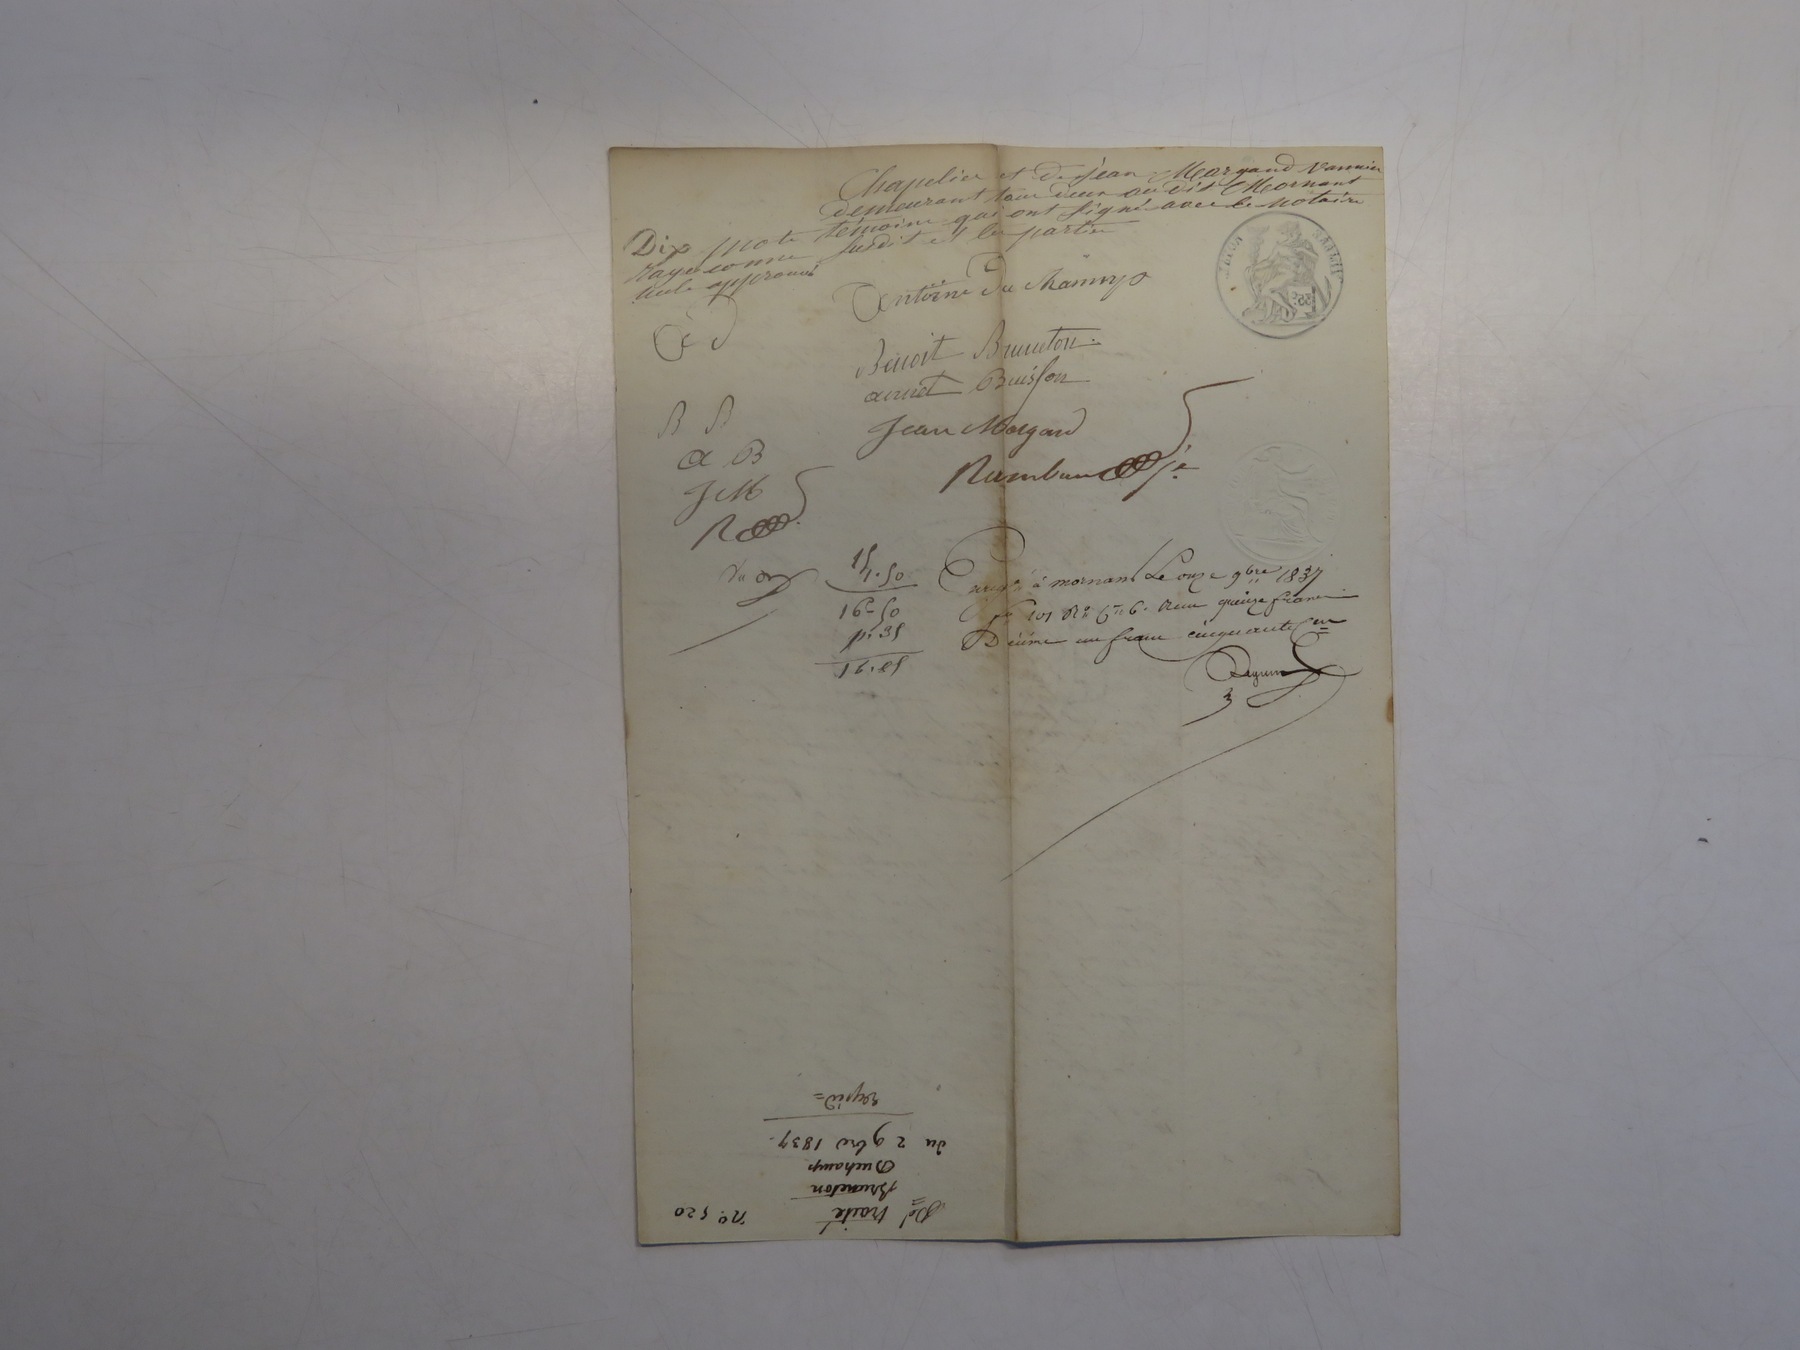 Chapelier et de Jean Morgand Vannier
demeurant tous deux au dit Mornant
témoins qui ont signé avec le Notaire
susdit et les parties
Dix mots
rayés comme
nuls approuvés
Antoine Du Champ
A D
Benoit Bruneton
annet Buisson
Jean Morgand
B B
a B
J M
Rambaud
R
15
1.50
16 50
1.35
Enregé à mornant Le onze 9bre 1837
fo 101 Ro Reçu quinze francs
Décime un franc cinquante Cen
no. 520
Del traité
Bruneton
Duchamp
du 2 9bre 1837.
expéd=